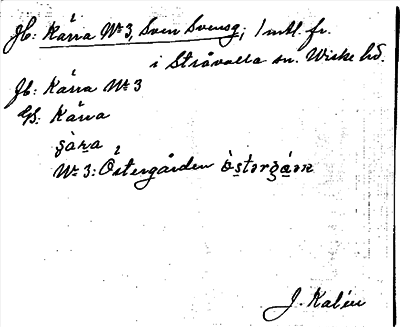 Jb: Kärra Nr 3, Sven Svensg; 1 mtl. fr.
i Stråvalla sn. Wiske hd.
Jb: Kärra Nr 3
Us: Kärra
ṣàra
Nr 3: Östergården östərgå̱ən
J. Kalén